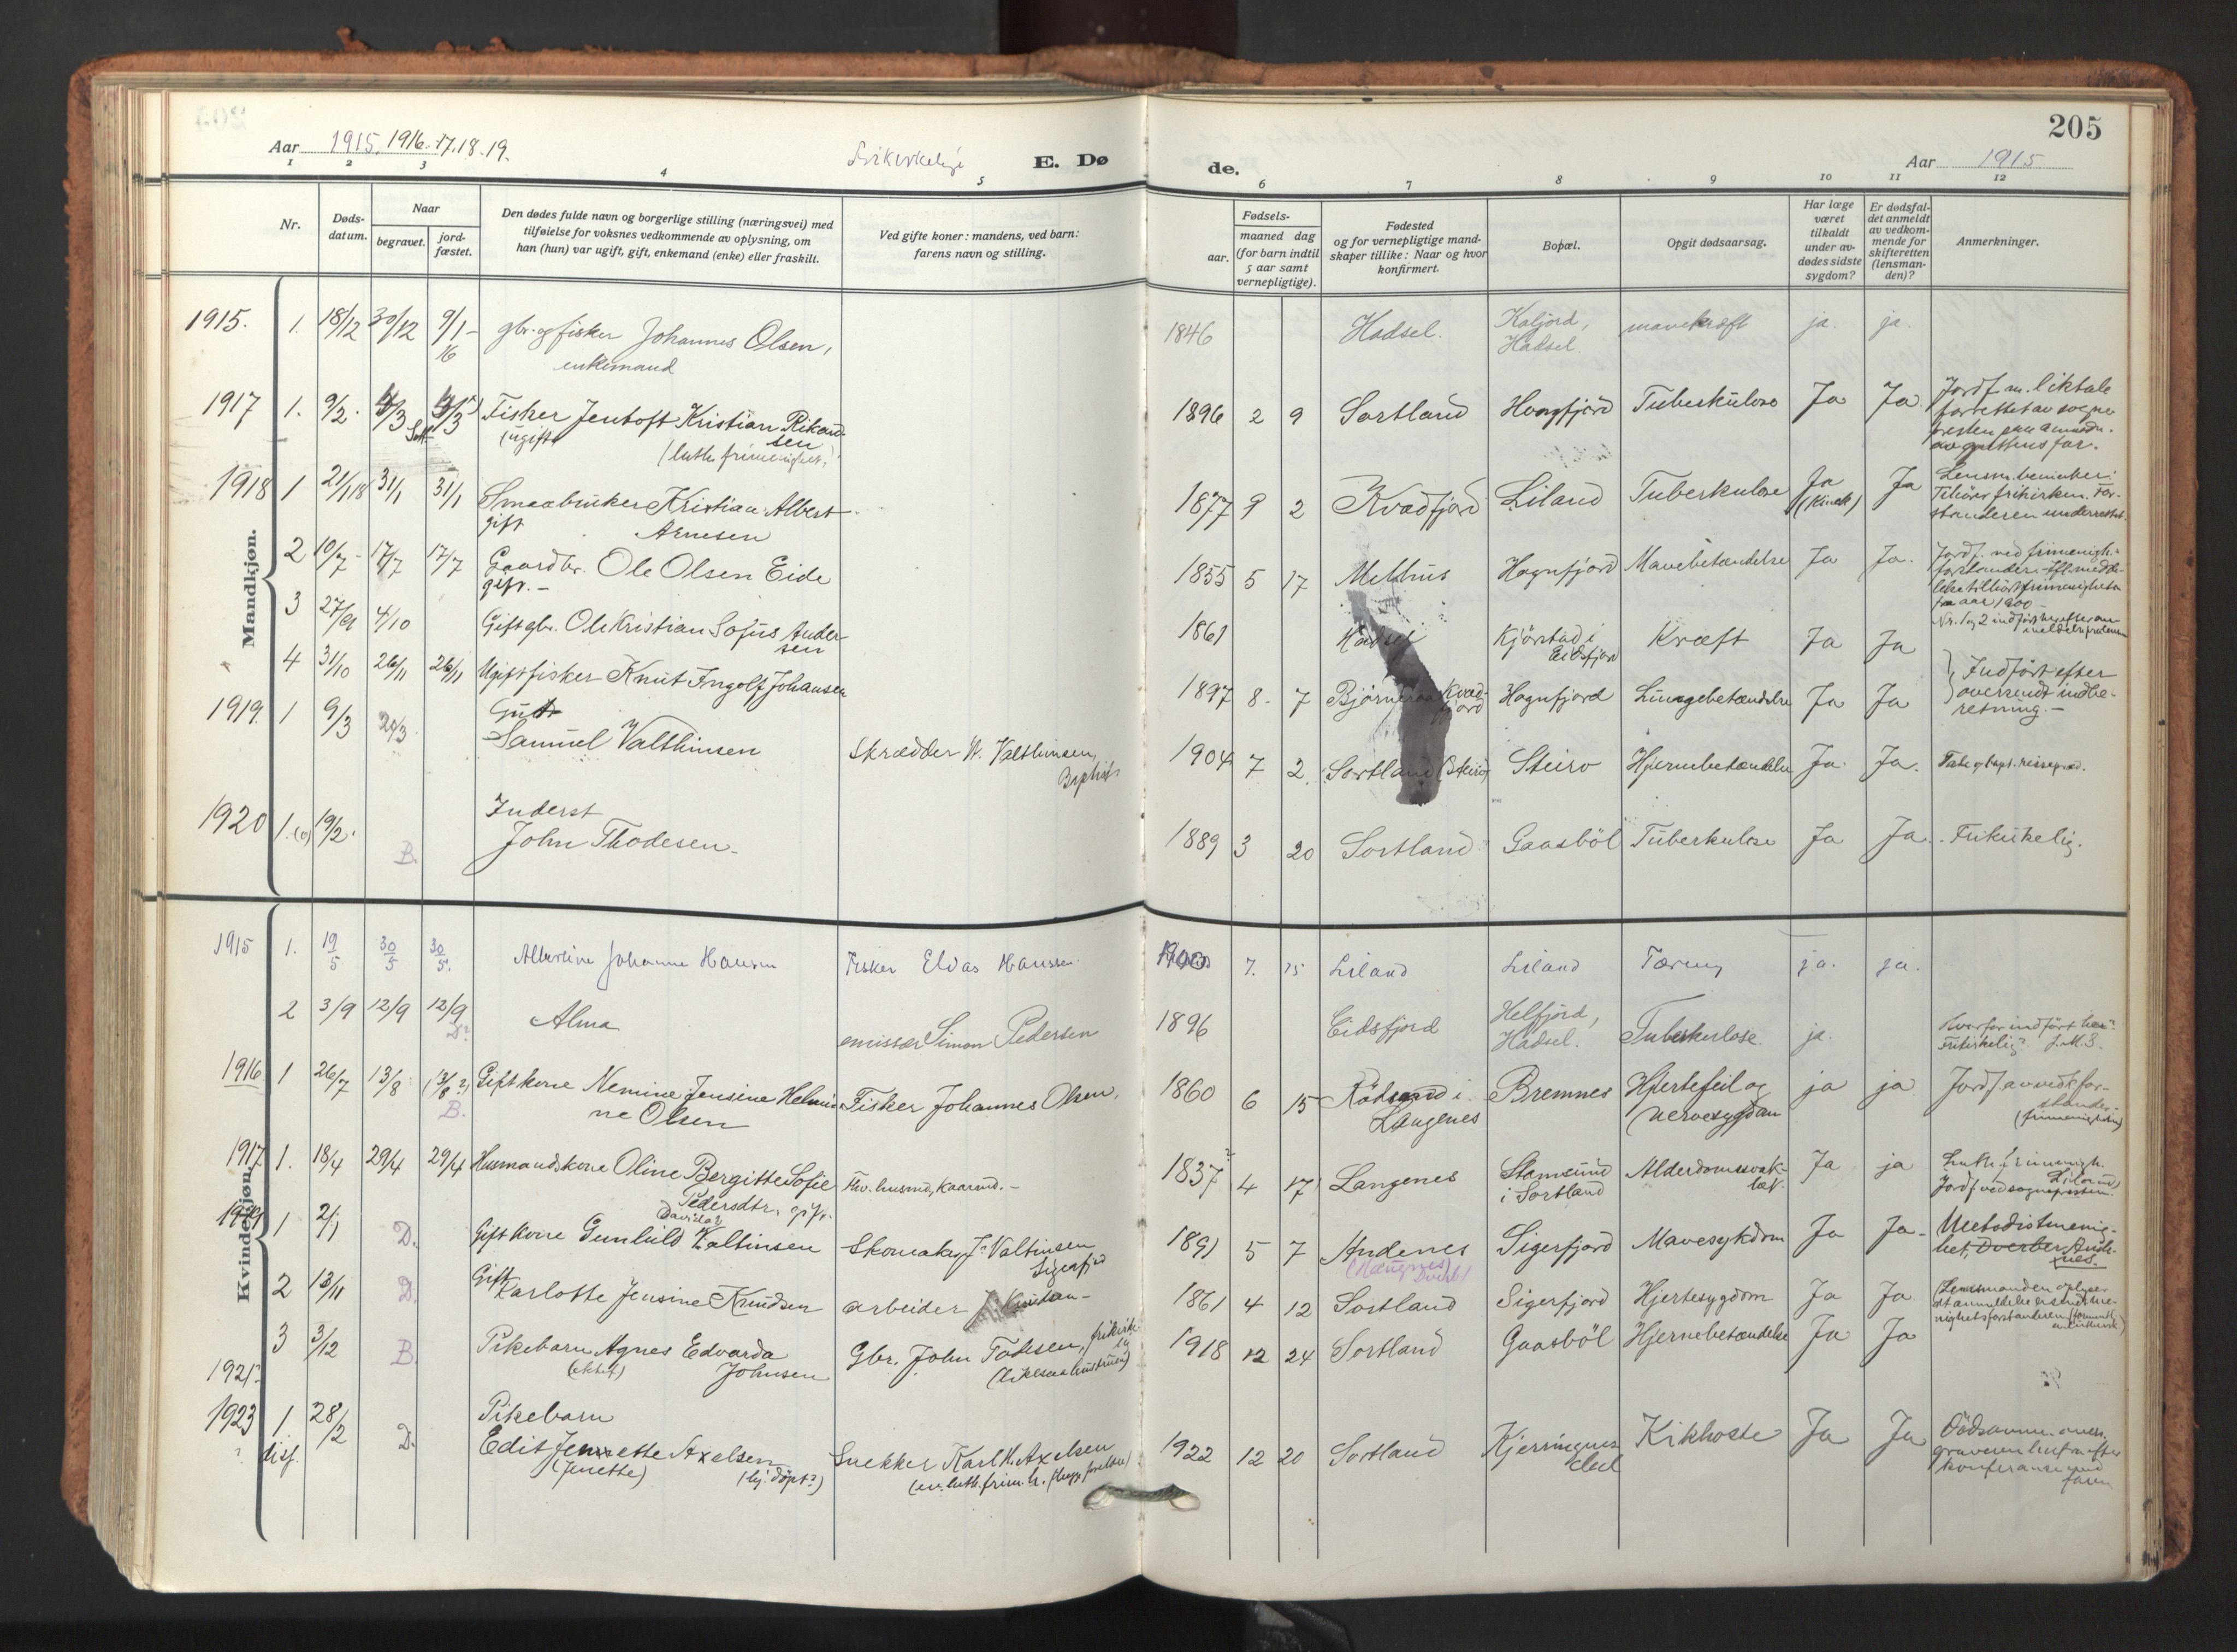 205
Aar 1915, 1916. 17. 18. 19.
Frikirkelige
E. Dø
de.
Aar 1915
1 2 3 4 5 6 7 8 9 10 11 12
Nr.
Døds-
datum.
Naar
begravet.
jord-
fæstet.
Den dødes fulde navn og borgerlige stilling (næringsvei) med
tilføielse for voksnes vedkommende av oplysning, om
han (hun) var ugift, gift, enkemand (enke) eller fraskilt.
Ved gifte koner: mandens, ved barn:
farens navn og stilling.
Fødsels-
aar.
maaned dag
(for barn indtil
5 aar samt
vernepligtige).
Fødested
og for vernepligtige mand-
skaper tillike: Naar og hvor
konfirmert.
Bopæl.
Opgit dødsaarsag.
Har læge
været
tilkaldt
under av-
dødes sidste
sygdom?
Er dødsfal-
det anmeldt
av vedkom-
mende for
skifteretten
(lensman-
den)?
Anmerkninger.
Mandkjøn.
1915. 1. 18/12 30/12 9/1-16 gbr. og fisker Johannes Olsen,
enkemand
1846 Hadsel. Kaljord,
Hadsel. mavekræft ja. ja.
1917 1. 9/2. 4/3 4/3 Fisker Jentoft Kristian Rikard-
sen
(ugift) (luth. frimenighet)
1896 2 9 Sortland Hognfjord Tuberkulose Ja Ja. Jordf. m. liktale
forrettet av sogne-
presten paa anmodn.
av guttens far.
1918 1 21/1 18 31/1 31/1 Smaabruker Kristian Albert
gift Arnesen
1877 9 2 Kvædfjord Liland Tuberkulose Ja
(Kinck) Ja Lensm. bemerker:
Tilhører frikirken. For-
standeren underrettet.
2 10/7 - 17/7 17/7 Gaardbr. Ole Olsen Eide
gift. -
1855 5 17 Melhus Hognfjord Mavebetændelse Ja Ja. Jordf. ved frimenigh.-
forstander.
fra aar 1900 -
3 27/9 4/10 Gift gbr. Ole Kristian Sofus Ander-
sen
1861 Hadsel Kjörstad i
Eidsfjord Kræft Ja Ja
4 31/10 26/11 26/11 Ugift fisker Knut Ingolf Johansen
1897 8 - 7 Bjørnraa Kvæd-
fjord Hognfjord Lungebetændelse Ja Ja Indført efter
oversendt indbe-
retning. -
1919. 1 9/3 20/3. Gut
Samuel Valthinsen Skrædder N. Valthinsen,
Baptist
1904 7 2 Sortland (Steiro) Steiro Hjernebetændelse Ja Ja.
1920 1. 19/2. B. Inderst
John Thodesen.
1889 3 20 Sortland Gaasböl Tuberkulose Ja Ja. Frikirkelig.
Kvindekjøn.
1915 1. 19/5 30/5 30/5. Albertine Johanne Hansen Fisker Elias Hanssen.
1900 7. 15 Liland Liland Tæring ja. ja.
2 3/9 12/9 12/9 D? Alma emissær Simon Pedersen
1896 Eidsfjord Helfjord,
Hadsel. Tuberkulose. ja. Hvorfor indført her?
Frikirkelig? J.M.S.
1916 1 26/7 13/8 (3/8?) B. Gift kone Nemine Jensine Helmi-
ne Olsen Fisker Johannes Olsen.
1860 6 15 Rödsand i
Langenes Bremnes Hjertefeil og
nervesygdom ja ja Jordf. av vedk. for-
stander
(frimenigheten)
1917 1. 18/4 29/4 29/4 Husmandskone Oline Bergitte Sofie
Pedersdtr, gift. Fhv. husmd, kaarmd. -
1837 4 17 Langenes Stamsund
i Sortland Alderdomssvak-
het. Ja ja Luth. frimenigh.
Jordf. ved sognepresten.
1919 1 2/1 D. Gift kone Gunhild Valtinsen Skomaker J. Valtinsen
Sigerfjord
1891 5 7 Andenes
(Haugnes)
Dverb. Sigerfjord Mavesykdom Ja Ja - Metodistmenig-
het, Dverberg Ande-
nes.
2 13/11 D. Gift Karlotte Jensine Knudsen arbeider Knutsen -
1861 4 12 Sortland Sigerfjord Hjertesygdom Ja Ja (Lensmanden oplyser
at anmeldelse er sendt me-
nighetsforstanderen
3 3/12 B. Pikebarn Agnes Edvarda
Johnsen Gbr. John Todesen, frikirke-
lig
1918 12 24 Sortland Gaasböl Hjernebetændelse Ja Ja
1921-
1923 1 28/2 D. Pikebarn
? disf. Edit Jensette Axelsen
(Jenette) (hj. döpt?) Snekker Karl H. Axelsen
1922 12 20 Sortland Kjerringnes-
dal Kikhoste Ja Ja Dödsanm.
konferanse med
faren